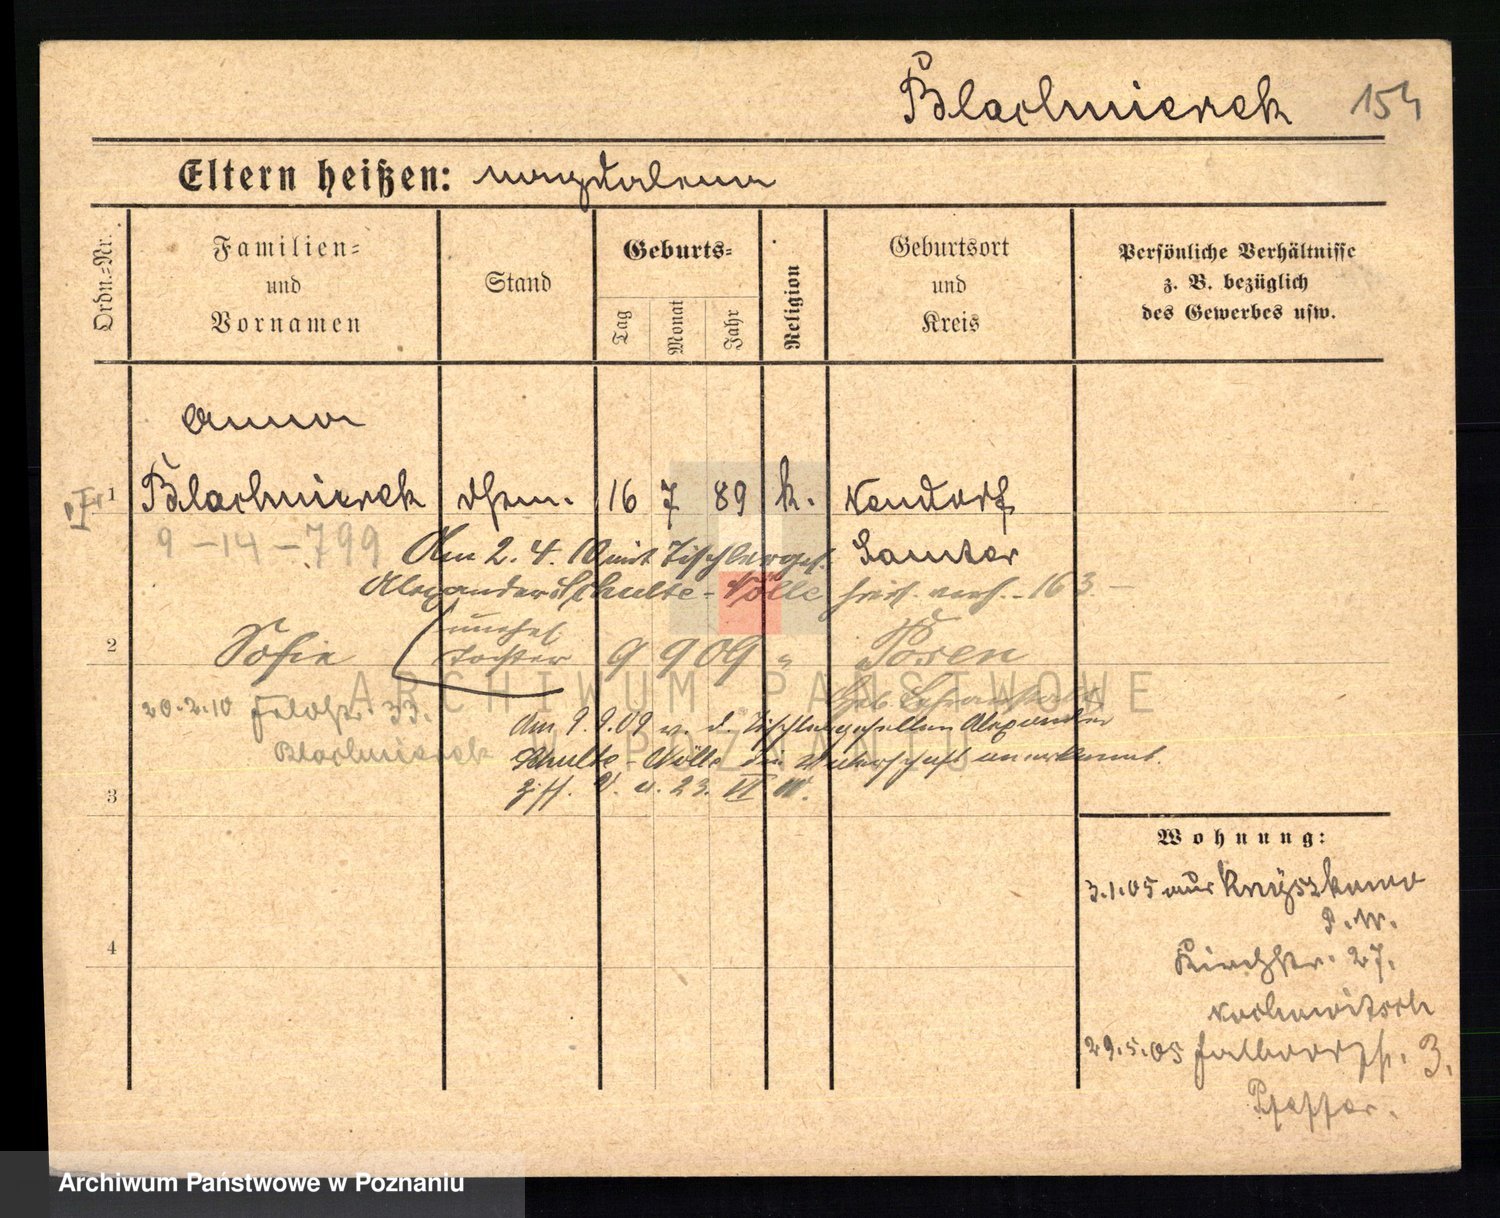 Blachnierek 154
Eltern heißen: Magdalena
Ordn.-Nr.
Familien-
und
Vornamen
Stand
Geburts-
Tag
Monat
Jahr
Religion
Geburtsort
und
Kreis
Persönliche Verhältnisse
z. B. bezüglich
des Gewerbes usw.
Anna
1 Blachnierek 16 7 89 k. Neudorf
9-14-799
Am 2. 4. 10 mit Tischlerges. Samter
Alexander Schulte-Nölle 163
unehel
2 Sofie Tochter 9 9 09 " Posen
ARCHIWUM PAŃSTWOWE
W POZNANIU
20.2.10 Feldstr. 33.
Blachnierek
am 9.9.09 v. d. Tischlergesellen Alexander
Schulte-Nölle die Vaterschaft anerkannt.
3
4
Wohnung:
3.1.05 aus
Kirchstr. 27.
29.5.05 3.
Pfeffer.
Archiwum Państwowe w Poznaniu